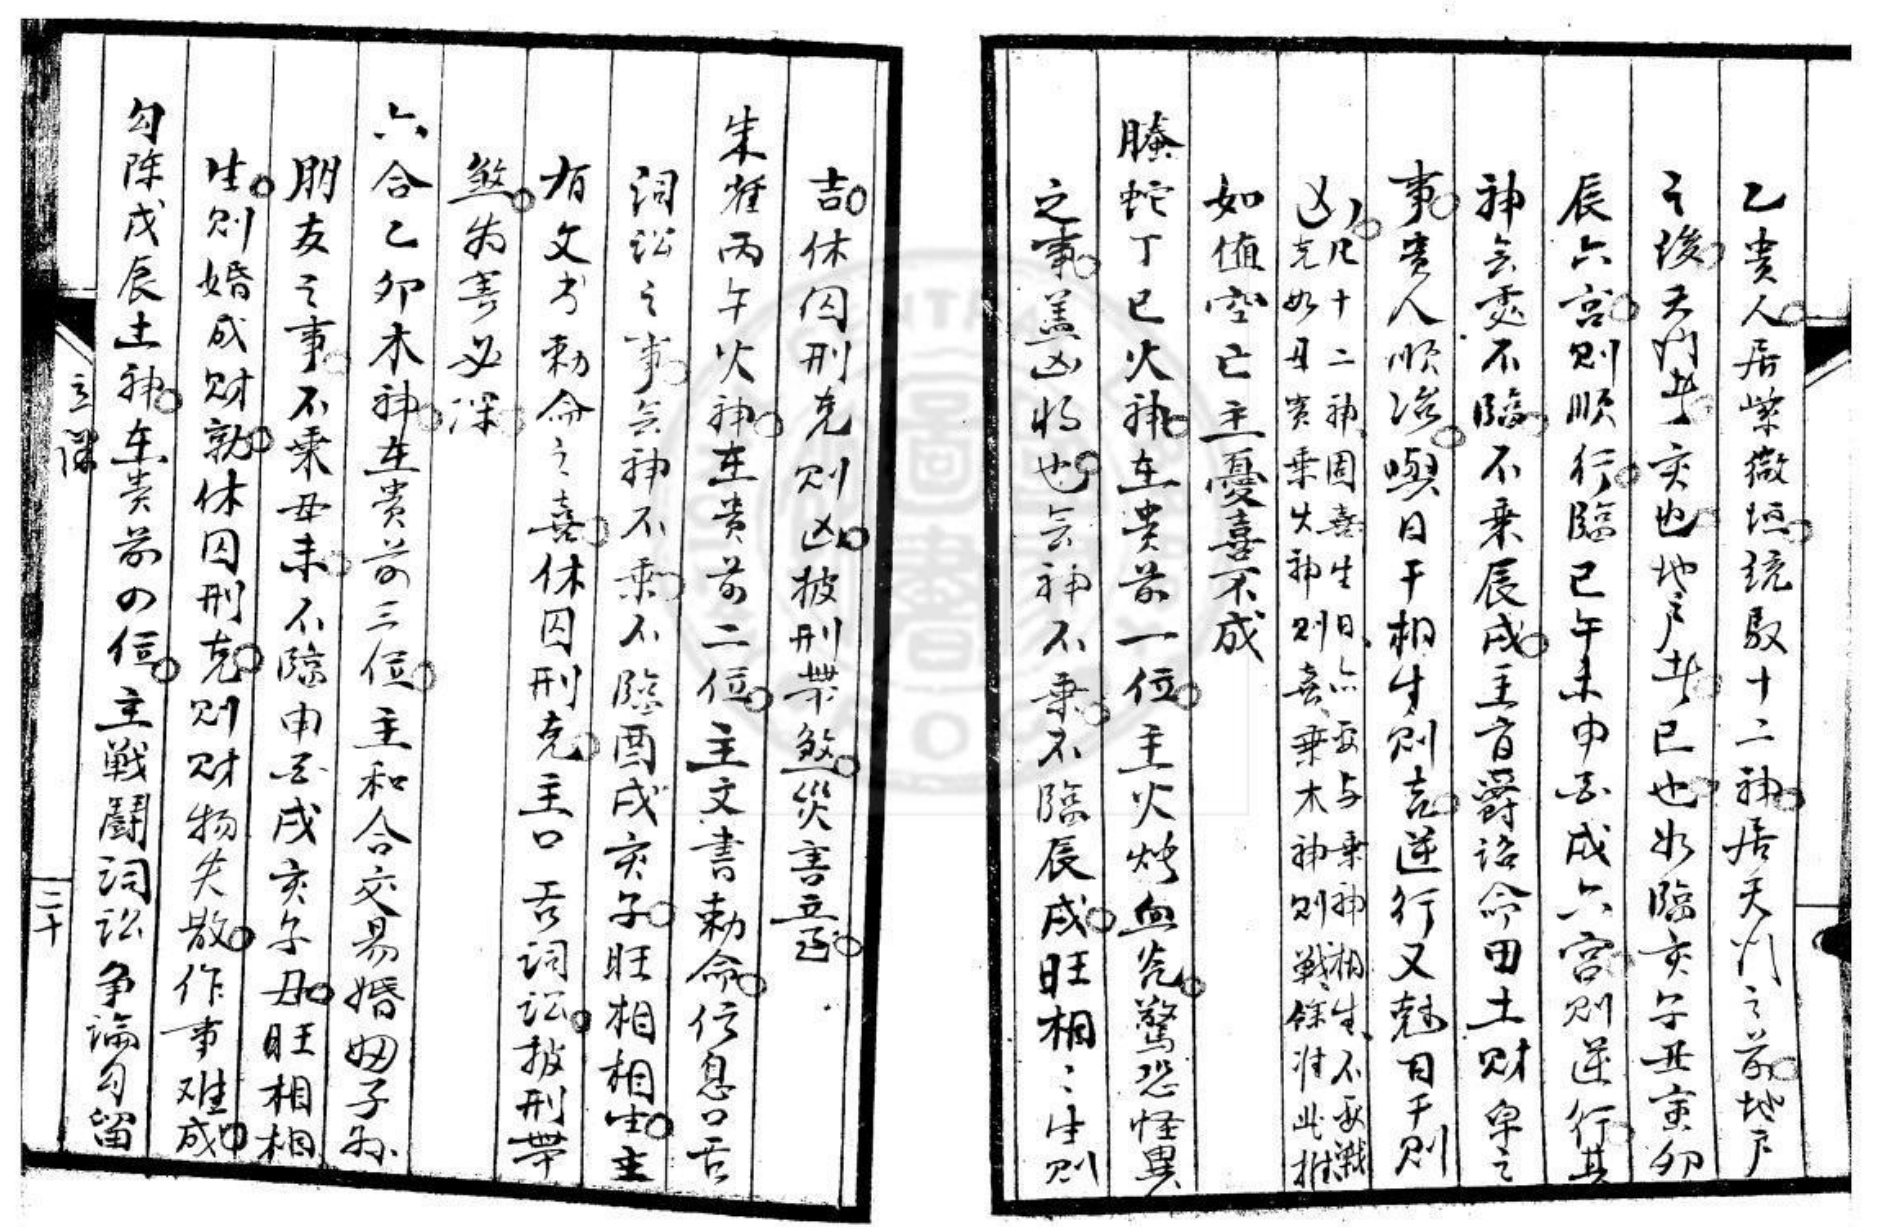 乙貴人居紫微垣統馭十二神居天門之前地戶
之後天門者亥也地戶者巳也如臨亥子丑寅卯
辰六宮則順行臨巳午未申酉戌六宮則逆行其
神之處不臨不乘辰戌主官爵詔命田土財帛之
事貴人順治與日干相生則吉逆行又尅日干則
凶凡十二神固喜生日亦要与乘神相生不要戰
克如丑貴乘火神則喜乘木神則戰餘准此推
如值空亡主憂喜不成
螣蛇丁巳火神在貴前一位主火燭血光驚恐怪異
之事盖凶将也之神不乘不臨辰戌旺相〻生則
吉休囚刑克則凶披刑帶煞災害立至
朱雀丙午火神在貴前二位主文書勅命信息口舌
詞訟之事之神不乘不臨酉戌亥子旺相相生主
有文書勅命之喜休囚刑克主口舌詞訟披刑帶
煞為害必深
六合乙卯木神在貴前三位主和合交易婚姻子孫
朋友之事不乘丑未不臨申酉戌亥子丑旺相相
生則婚成財就休囚刑克則財物失散作事难成
勾陈戊辰土神在貴前四位主戰鬪詞訟争論勾留
二十